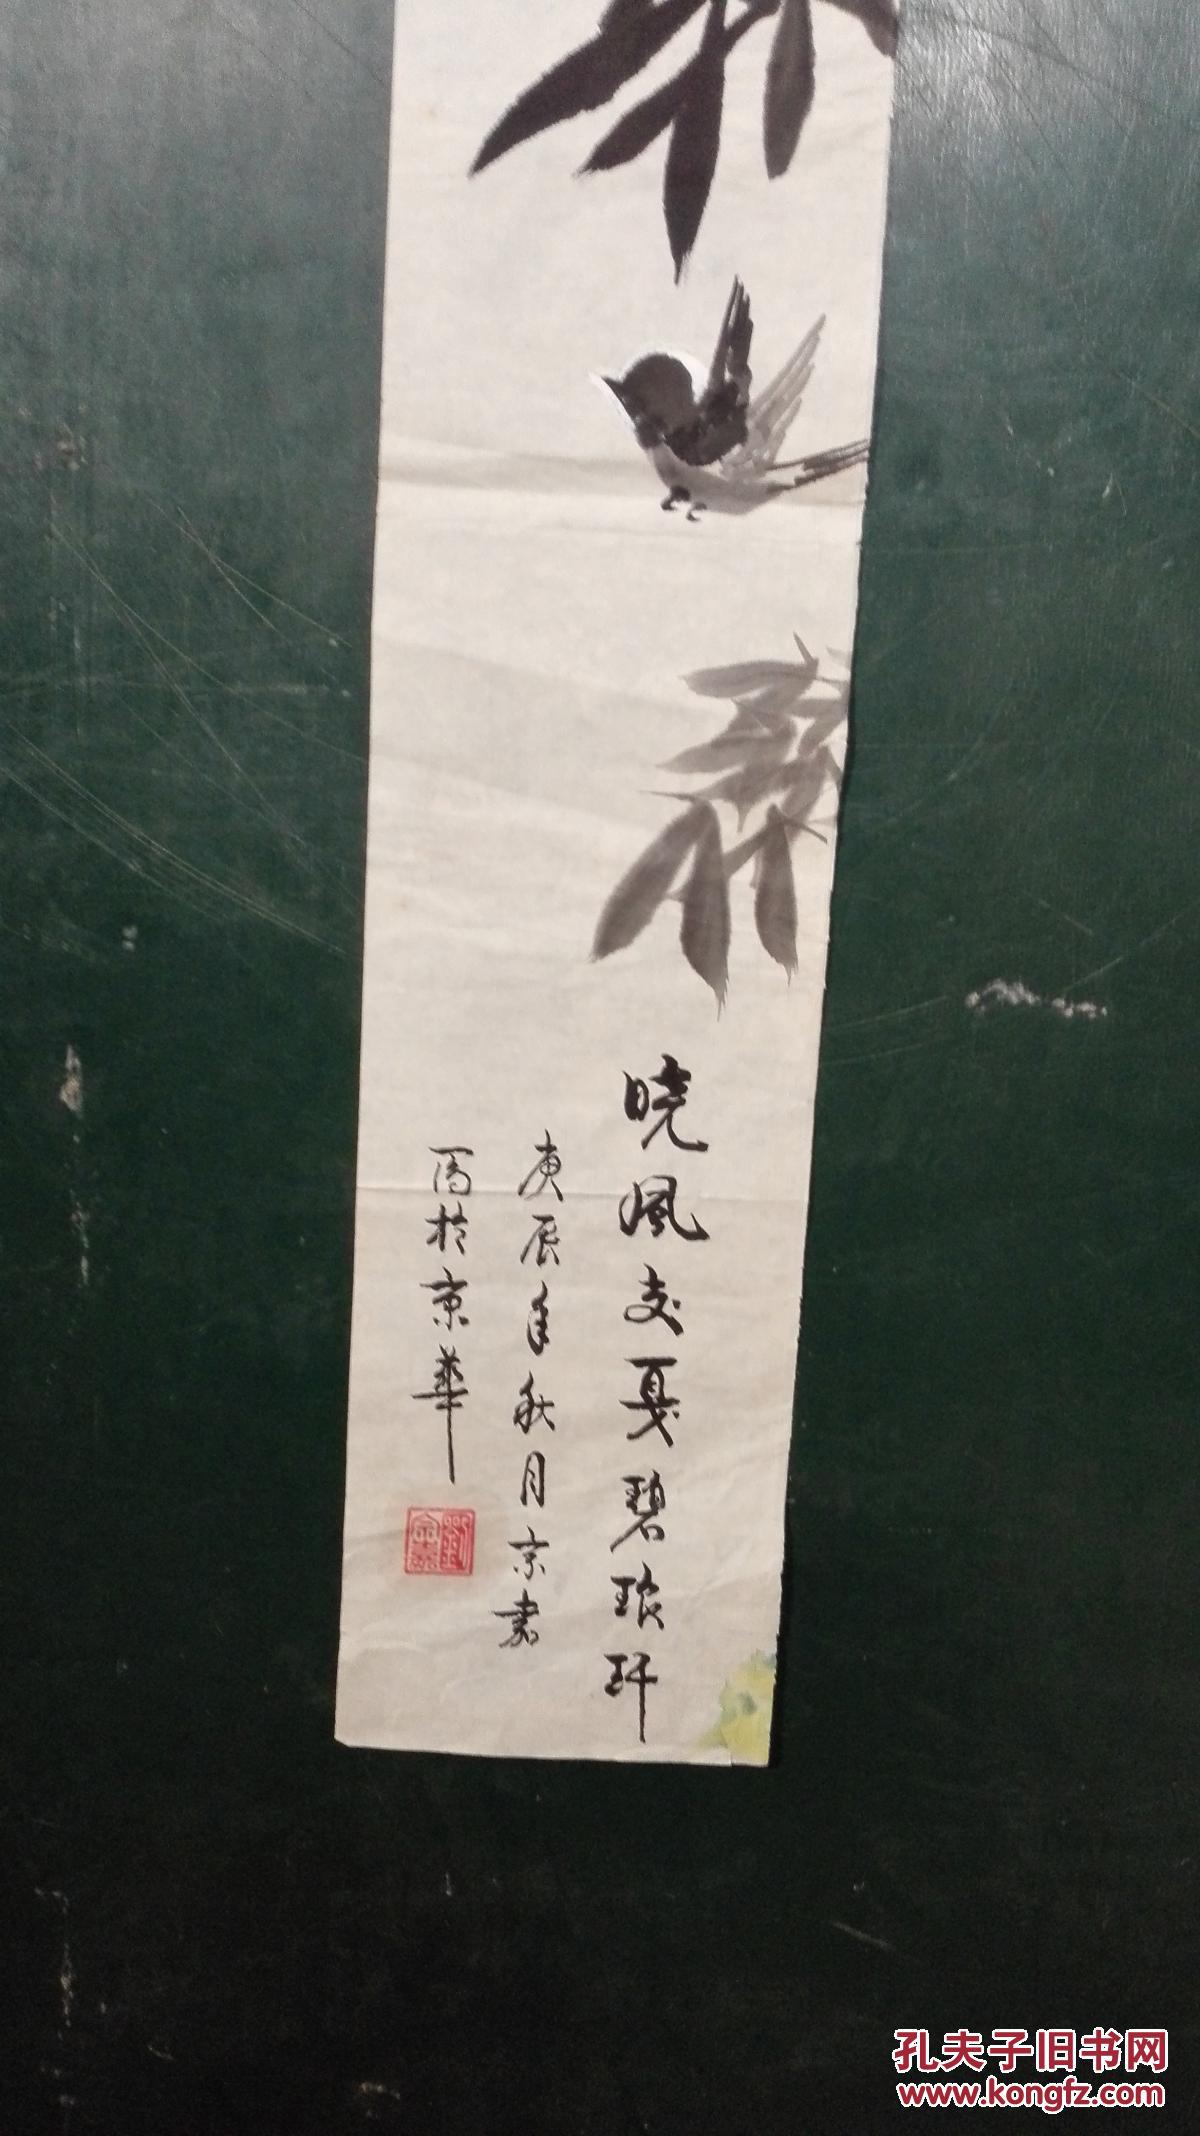 晓风交戛碧琅玕
庚辰年秋月京書
写於京華
孔夫子旧书网
www.kongfz.com